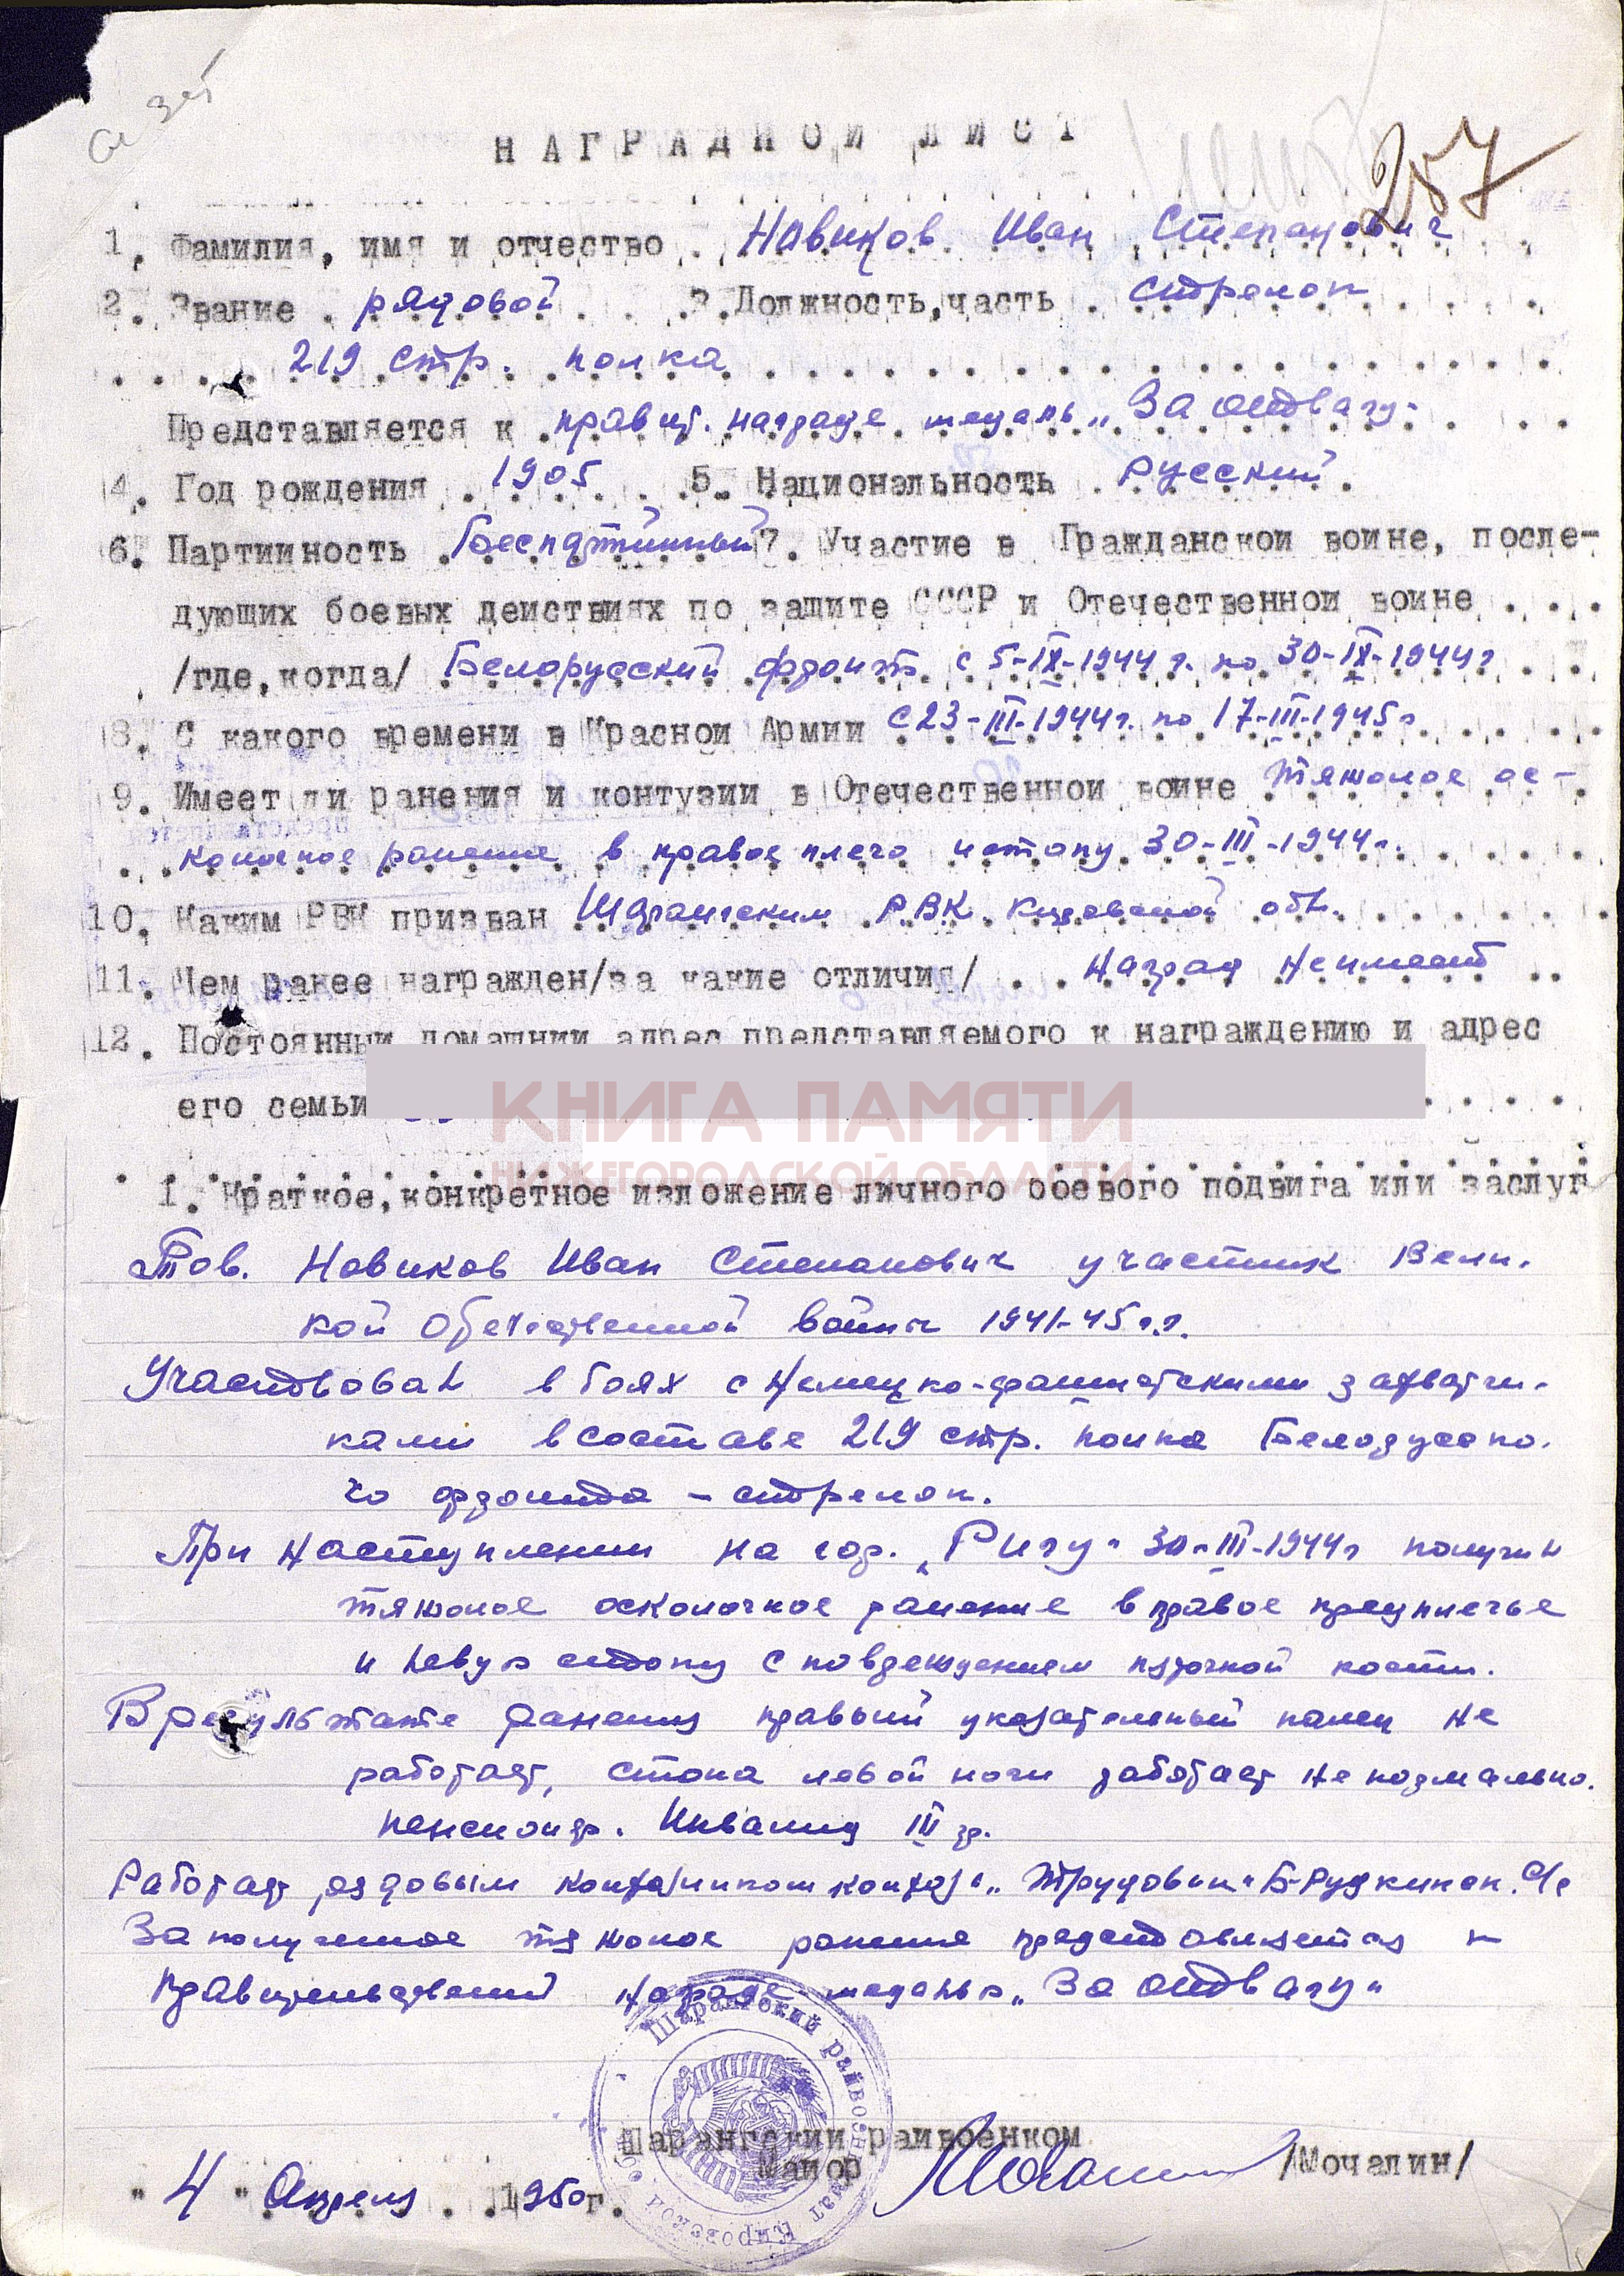 257
НАГРАДНОЙ ЛИСТ
1. Фамилия, имя и отчество Новиков Иван Степанович
2. Звание рядовой 3. Должность, часть стрелок
219 стр. полка
Представляется к правит. награде медаль „За отвагу"
4. Год рождения 1905 5. Национальность Русский
6. Партийность Беспартийный 7. Участие в Гражданской войне, после-
дующих боевых действиях по защите СССР и Отечественной войне
/где, когда/ Белорусский фронт с 5-IX-1944 г. по 30-IX-1944 г
8. С какого времени в Красной Армии с 23-III-1944 г. по 17-III-1945 г
9. Имеет ли ранения и контузии в Отечественной войне тяжолое ос-
колочное ранение в правое плечо и стопу 30-III-1944 г.
10. Каким РВК призван Шарангским РВК Кировской обл.
11. Чем ранее награжден/за какие отличия/ Наград не имеет
12. Постоянный домашний адрес представляемого к награждению и адрес
его семьи
КНИГА ПАМЯТИ
НИЖЕГОРОДСКОЙ ОБЛАСТИ
1. Краткое, конкретное изложение личного боевого подвига или заслуг
Тов. Новиков Иван Степанович участник Вели-
кой Отечественной войны 1941-45 г.г.
Участвовал в боях с немецко-фашистскими захватчи-
ками в составе 219 стр. полка Белорусско-
го фронта - стрелок.
При наступлении на гор. „Ригу" 30-III-1944 г получил
тяжолое осколочное ранение в правое предплечье
и левую стопу с повреждением пяточной кости.
В результате ранения правый указательный палец не
работает, стопа левой ноги работает не нормально.
пенсионер. Инвалид III гр.
Работает ездовым колхозником колхоза „Трудовик" Б-Рудкинск. С/с
За полученное тяжолое ранение представляется к
правительственной награде медалью „За отвагу"
Шарангский райвоенкомат Кировской об
Шарангский райвоенком
Майор /Мочалин/
"4" Апреля 1950 г.